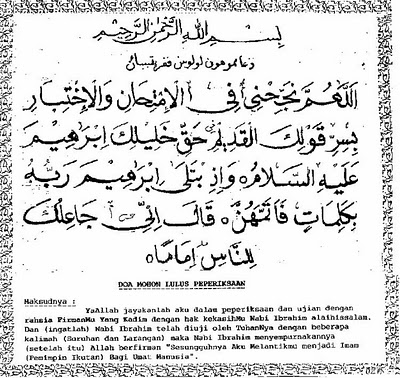 بِسْمِ اللهِ الرَّحْمٰنِ الرَّحِيْمِ
دعاء موهون لولوس ففريقسان
اَللّٰهُمَّ نَجِّحْنِي فِي الْإِمْتِحَانِ وَالْإِخْتِبَارِ
بِسِرِّ قَوْلِكَ الْقَدِيْمِ حَقِّ خَلِيْلِكَ اِبْرَاهِيْمَ
عَلَيْهِ السَّلَامُ وَاِذِ بْتَلٰى اِبْرَاهِيْمَ رَبُّهُ
بِكَلِمَاتٍ فَاَتَمَّهُنَّ قَالَ اِنِّيْ جَاعِلُكَ
لِلنَّاسِ اِمَامًا
DOA MOHON LULUS PEPERIKSAAN
Maksudnya :
YaAllah jayakanlah aku dalam peperiksaan dan ujian dengan
rahsia FirmanMu Yang Kadim dengan hak kekasihMu Nabi Ibrahim alaihissalam.
Dan (ingatlah) Nabi Ibrahim telah diuji oleh TuhanNya dengan beberapa
kalimah (Suruhan dan Larangan) maka Nabi Ibrahim menyempurnakannya
(setelah itu) Allah berfirman "Sesungguhnya Aku Melantikmu menjadi Imam
(Pemimpin Ikutan) Bagi Umat Manusia".